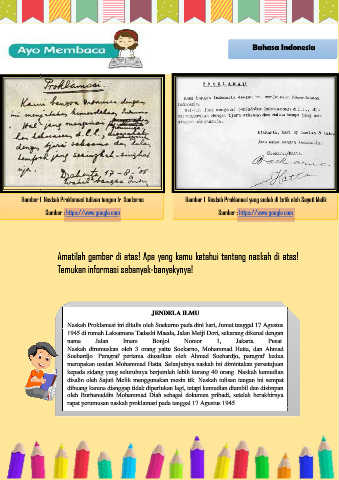 Ayo Membaca
Bahasa Indonesia
Proklamasi
Kami bangsa Indonesia dengan
ini menjatakan kemerdekaan
Hal
d.l.l.,
dengan tjara saksama dan dalam
tempoh jang sesingkat-singkat
nja.
Djakarta, 17-8-'05
PROKLAMASI
Kami bangsa Indonesia dengan ini menjatakan
Indonesia.
Djakarta, hari 17
Atas nama bangsa Indonesia.
Soekarno/Hatta.
Gambar 1 Naskah Proklamasi tulisan tangan Ir. Soekarno
Sumber : https://www.google.com
Gambar 1 Naskah Proklamasi yang sudah di ketik oleh Sayuti Melik
Sumber : https://www.google.com
Amatilah gambar di atas! Apa yang kamu ketahui tentang naskah di atas!
Temukan informasi sebanyak-banyaknya!
JENDELA ILMU
Naskah Proklamasi ini ditulis oleh Soekarno pada dini hari, Jumat tanggal 17 Agustus
1945 di rumah Laksamana Tadashi Maeda, Jalan Meiji Dori, sekarang dikenal dengan
nama Jalan Imam Bonjol Nomor 1, Jakarta Pusat
Naskah dirumuskan oleh 3 orang yaitu Soekarno, Mohammad Hatta, dan Ahmad
Soebardjo. Paragraf pertama diusulkan oleh Ahmad Soebardjo, paragraf kedua
merupakan usulan Mohammad Hatta. Selanjutnya naskah ini dimintakan persetujuan
kepada sidang yang seluruhnya berjumlah lebih kurang 40 orang. Naskah kemudian
disalin oleh Sajuti Melik menggunakan mesin tik. Naskah tulisan tangan ini sempat
dibuang karena dianggap tidak diperlukan lagi, tetapi kemudian diambil dan disimpan
oleh Burhanuddin Mohammad Diah sebagai dokumen pribadi, setelah berakhirnya
rapat perumusan naskah proklamasi pada tanggal 17 Agustus 1945